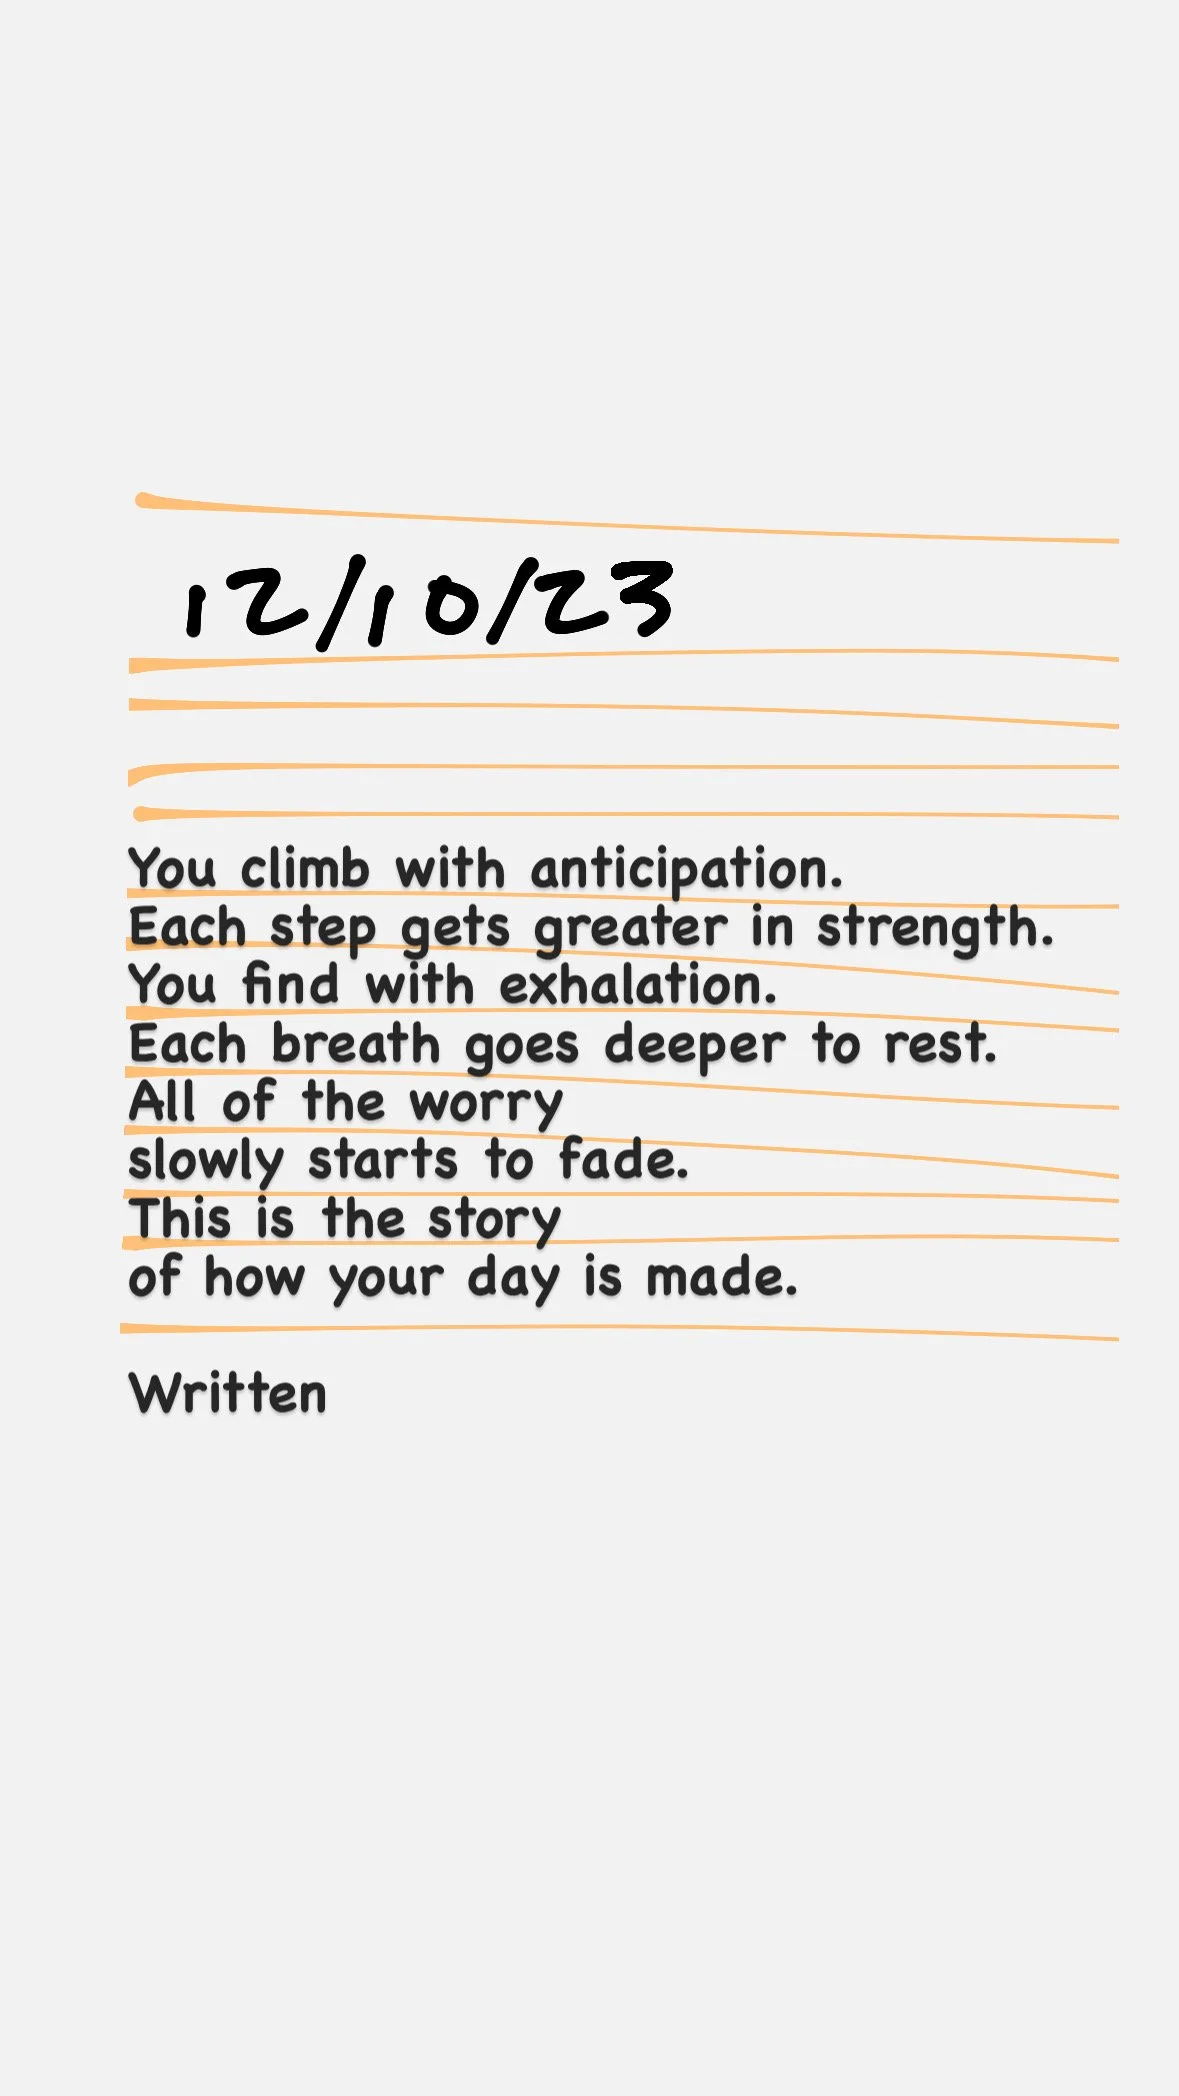 12/10/23
You climb with anticipation.
Each step gets greater in strength.
You find with exhalation.
Each breath goes deeper to rest.
All of the worry
slowly starts to fade.
This is the story
of how your day is made.
Written